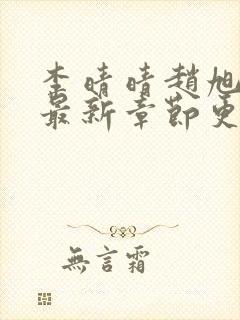 李晴晴趙旭
最新章節更
無言霜